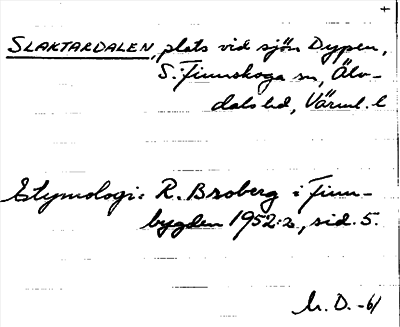 +
SLAKTARDALEN, plats vid sjön Dypen,
S. Finnskoga sn, Älv-
dals hd, Värml. l
Etymologi: R. Broberg i Finn-
bygden 1952:2, sid. 5.
M. D. -61